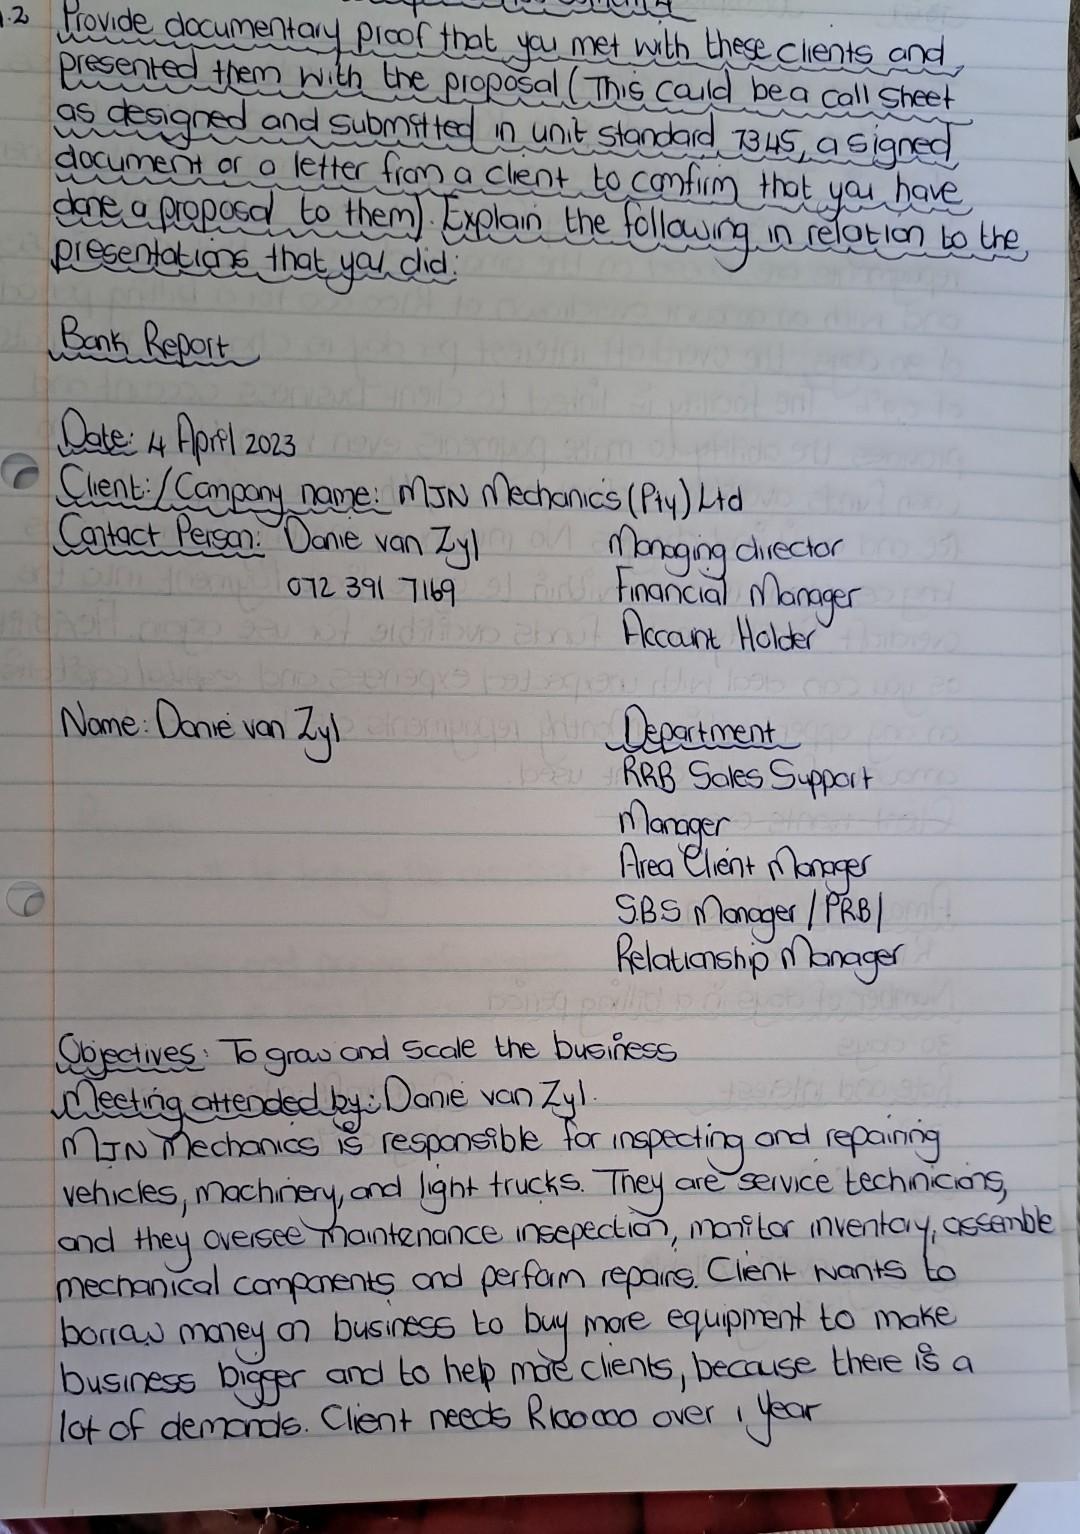 1.2 Provide documentary proof that you met with these clients and
presented them with the proposal (This could be a call sheet
as designed and submitted in unit standard 7345, a signed
document or a letter from a client to confirm that you have
done a proposal to them). Explain the following in relation to the
presentations that you did:
Bank Report
Date: 4 April 2023
Client:/Company name: MJN Mechanics (Pty) Ltd
Contact Person: Danie van Zyl Managing director
072 391 7169 Financial Manager
Account Holder
Name: Danie van Zyl Department
RRB Sales Support
Manager
Area Client Manager
SBS Manager / PRB/
Relationship Manager
Objectives: To grow and scale the business
Meeting attended by: Danie van Zyl.
MJN Mechanics is responsible for inspecting and repairing
vehicles, machinery, and light trucks. They are service techinicians,
and they oversee maintenance insepection, monitor inventory, assemble
mechanical components and perform repairs. Client wants to
borrow money on business to buy more equipment to make
business bigger and to help more clients, because there is a
lot of demands. Client needs R100000 over 1 year